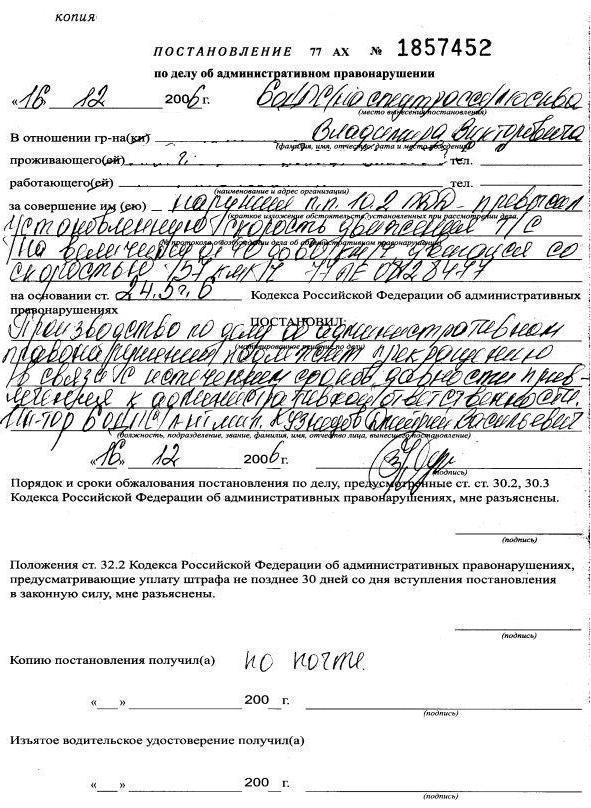 копия
ПОСТАНОВЛЕНИЕ 77 АХ № 1857452
по делу об административном правонарушении
«16 12 2006 г. 6 б ДПС на спецтрассе г. Москва
(место вынесения постановления)
В отношении гр-на(ки) Владимира Викторовича
(фамилия, имя, отчество, дата и место рождения)
проживающего(ей) г. тел.
работающего(ей) тел.
(наименование и адрес организации)
за совершение им (ею) нарушил п.п. 10.2 ПДД - превысил
(краткое изложение обстоятельств, установленных при рассмотрении дела,
установленную скорость движения т/с
№ протокола о возбуждении дела об административном правонарушении)
на величину от 40 до 60 км/ч двигался со
скоростью км/ч
на основании ст. 24.5 г. 6 Кодекса Российской Федерации об административных
правонарушениях
ПОСТАНОВИЛ:
Производство по делу об административном
(мотивированное решение по делу)
правонарушении подлежит прекращению
в связи с истечением сроков давности прив-
лечения к административной ответственности.
Ин-тор 6 б ДПС Кузнецов Дмитрий Васильевич
(должность, подразделение, звание, фамилия, имя, отчество лица, вынесшего постановление)
«16 12 2006 г.
(подпись)
Порядок и сроки обжалования постановления по делу, предусмотренные ст. ст. 30.2, 30.3
Кодекса Российской Федерации об административных правонарушениях, мне разъяснены.
(подпись)
Положения ст. 32.2 Кодекса Российской Федерации об административных правонарушениях,
предусматривающие уплату штрафа не позднее 30 дней со дня вступления постановления
в законную силу, мне разъяснены.
(подпись)
Копию постановления получил(а) по почте
«__» 200_ г.
(подпись)
Изъятое водительское удостоверение получил(а)
«__» 200_ г.
(подпись)